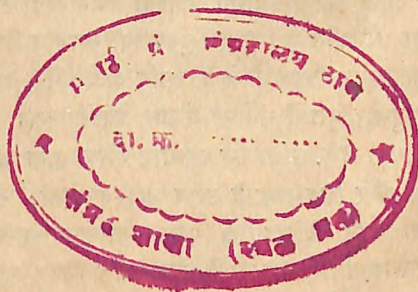 संग्रहालय ठाणे
दा. क्र. ............
संदर्भ शाखा (स्थळ प्रत)